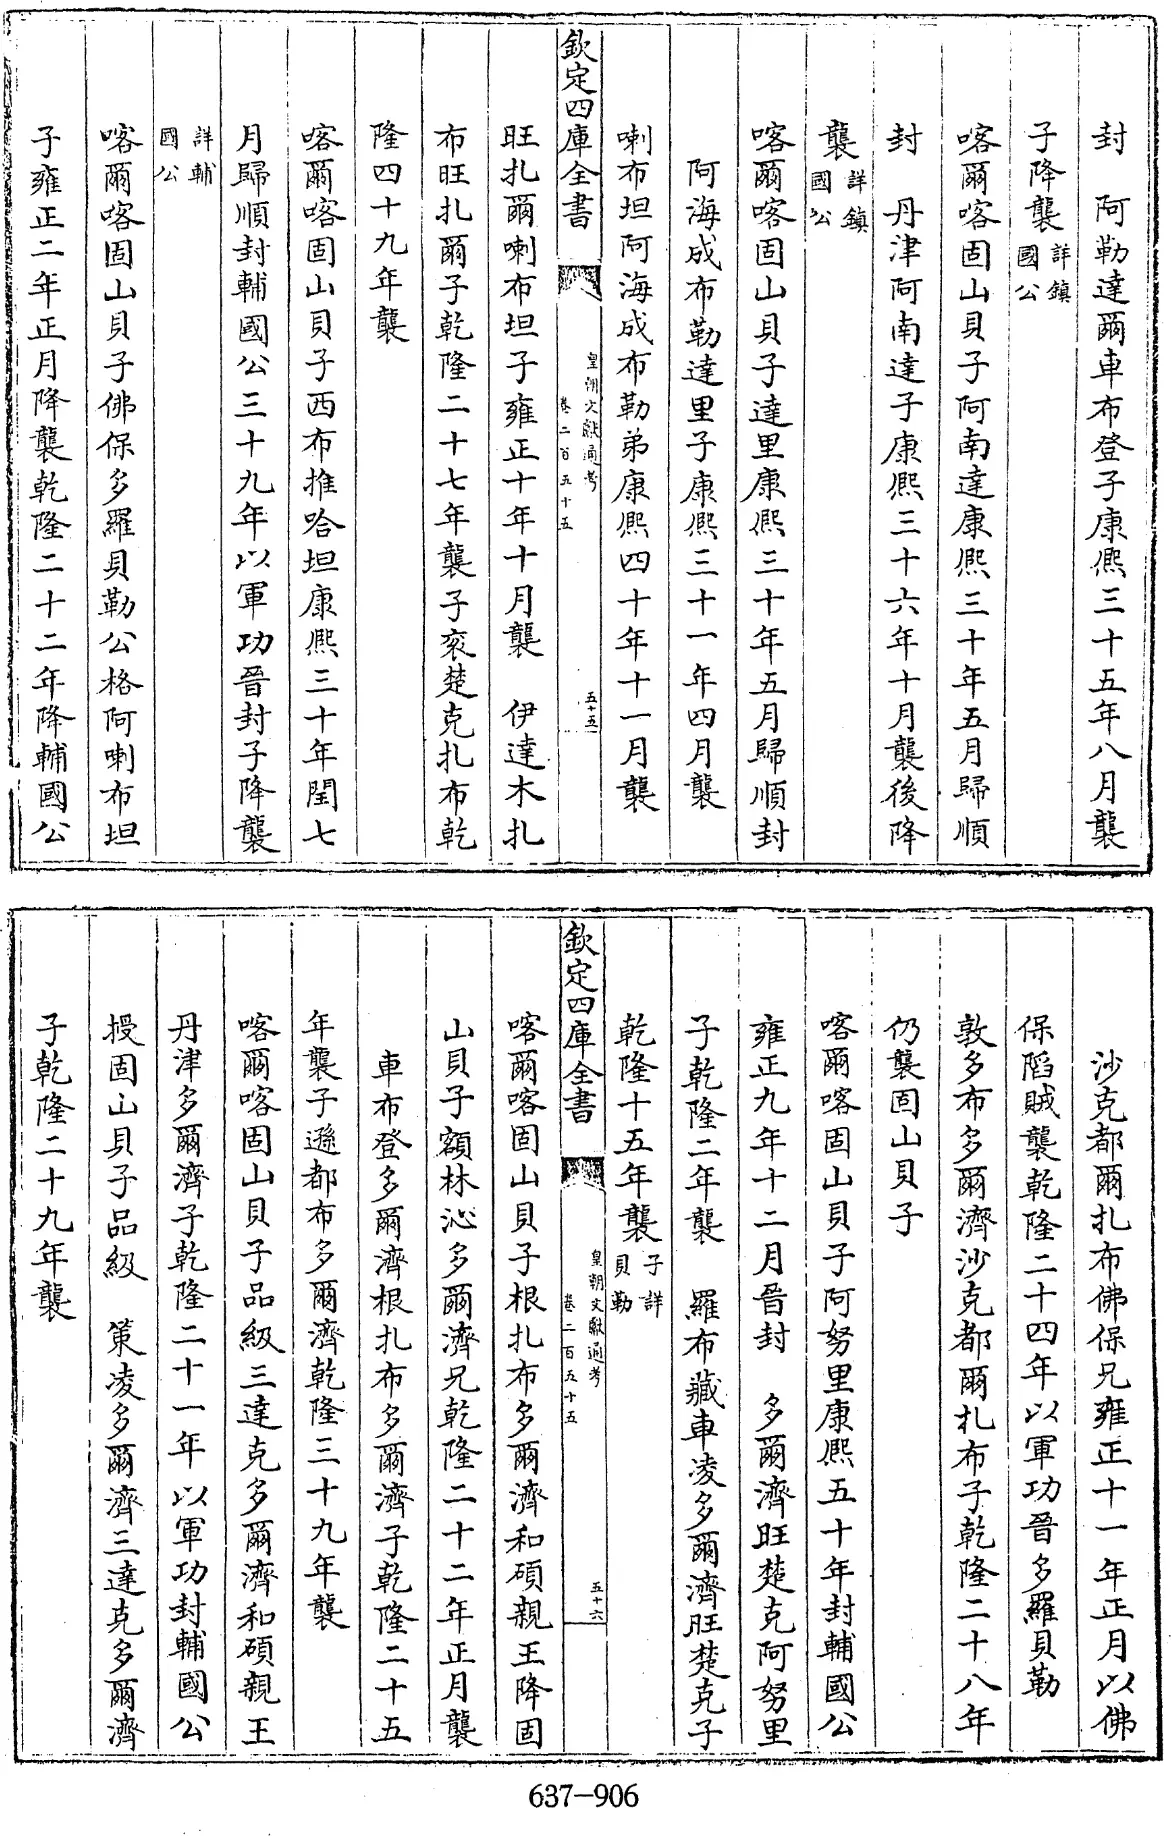 封　阿勒達爾車布登子康熙三十五年八月襲
子降襲詳鎮國公
喀爾喀固山貝子阿南達康熙三十年五月歸順
封　丹津阿南達子康熙三十六年十月襲後降
襲詳鎮國公
喀爾喀固山貝子達里康熙三十年五月歸順封
阿海成布勒達里子康熙三十一年四月襲
喇布坦阿海成布勒弟康熙四十年十一月襲
欽定四庫全書　皇朝文獻通考　卷二百五十五　五十五
旺扎爾喇布坦子雍正十年十月襲　伊達木扎
布旺扎爾子乾隆二十七年襲子衮楚克扎布乾
隆四十九年襲
喀爾喀固山貝子西布推哈坦康熙三十年閏七
月歸順封輔國公三十九年以軍功晉封子降襲
詳輔國公
喀爾喀固山貝子佛保多羅貝勒公格阿喇布坦
子雍正二年正月降襲乾隆二十二年降輔國公
沙克都爾扎布佛保兄雍正十一年正月以佛
保䧟賊襲乾隆二十四年以軍功晉多羅貝勒
敦多布多爾濟沙克都爾扎布子乾隆二十八年
仍襲固山貝子
喀爾喀固山貝子阿努里康熙五十年封輔國公
雍正九年十二月晉封　多爾濟旺楚克阿努里
子乾隆二年襲　羅布藏車凌多爾濟旺楚克子
乾隆十五年襲子詳貝勒
欽定四庫全書　皇朝文獻通考　卷二百五十五　五十六
喀爾喀固山貝子根扎布多爾濟和碩親王降固
山貝子額林沁多爾濟兄乾隆二十二年正月襲
車布登多爾濟根扎布多爾濟子乾隆二十五
年襲子遜都布多爾濟乾隆三十九年襲
喀爾喀固山貝子品級三達克多爾濟和碩親王
丹津多爾濟子乾隆二十一年以軍功封輔國公
授固山貝子品級　策凌多爾濟三達克多爾濟
子乾隆二十九年襲
637-906